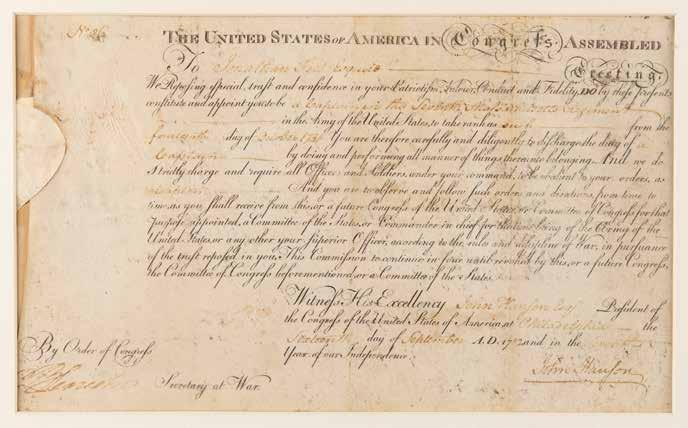 No. 26
THE UNITED STATES OF AMERICA IN Congress ASSEMBLED
To Jonathan esquire Greeting.
We Reposing special trust and confidence in your Patriotism, Valour, Conduct and Fidelity, DO by these Presents
constitute and appoint you to be a Captain in the Massachusetts Regiment
in the Army of the United States, to take rank as such from the
day of October 1781 You are therefore carefully and diligently to discharge the duty of a
Captain by doing and performing all manner of things thereunto belonging. And we do
Strictly charge and require all Officers and Soldiers, under your command, to be obedient to your orders, as
And you are to observe and follow such orders and directions from time to
time as you shall receive from this, or a future Congress of the United States, or Committee of Congress for that
purpose appointed, a Committee of the States, or Commander in chief for the time being of the Army of the
United States, or any other your Superior Officer, according to the rules and discipline of War, in pursuance
of the trust reposed in you. This Commission to continue in force until revoked by this, or a future Congress,
the Committee of Congress beforementioned, or a Committee of the States.
Witness His Excellency John Hanson Esq President of
the Congress of the United States of America at Philadelphia the
day of September A.D. 1782 and in the
Year of our Independence.
By Order of Congress
John Hanson
Secretary at War.